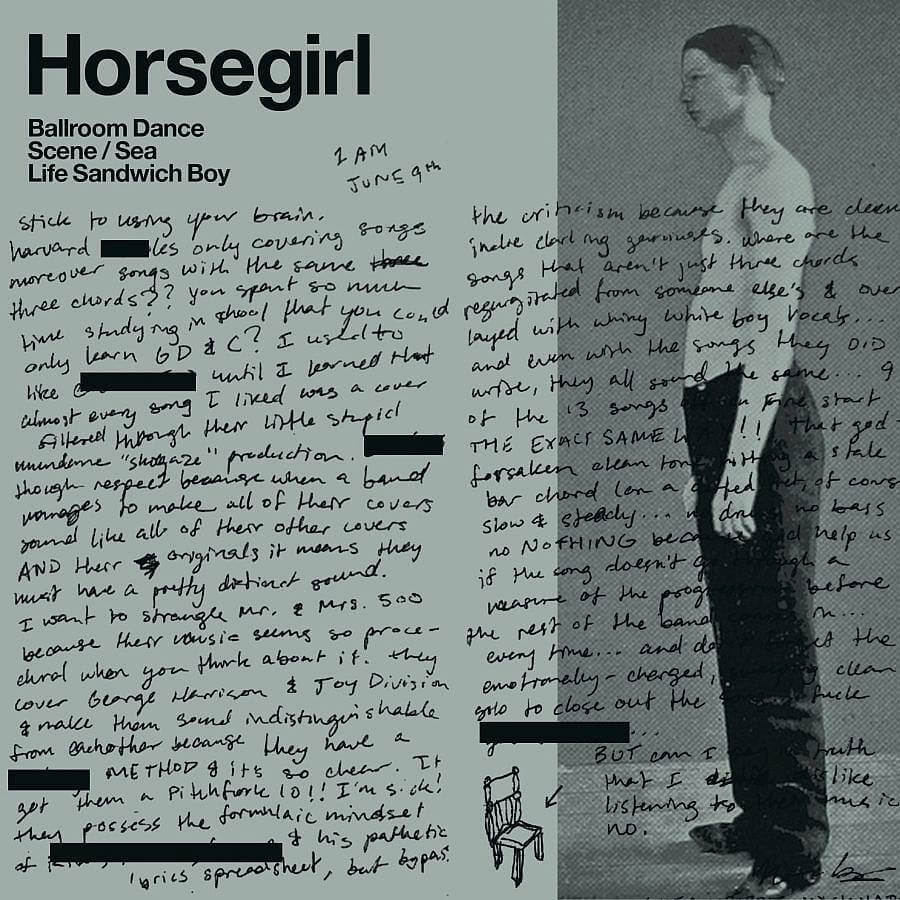 Horsegirl
Ballroom Dance
Scene / Sea
Life Sandwich Boy
1 AM
JUNE 9th
stick to using your brain.
harvard les only covering songs
moreover songs with the same three
three chords?? you spent so much
time studying in shool that you could
only learn G D & C? I used to
like until I learned that
almost every song I liked was a cover
filtered through their little stupid
mundane "shoegaze" production.
though respect because when a band
manages to make all of their covers
sound like all of their other covers
AND their originals it means they
must have a pretty distinct sound.
I want to strangle Mr. & Mrs. 500
because their music seems so proce-
dural when you think about it. they
cover George Harrison & Joy Division
& make them sound indistinguishable
from eachother because they have a
METHOD & it's so clear. It
got them a Pitchfork 10!! I'm sick!
they possess the formulaic mindset
of & his pathetic
lyrics spreadsheet, but bypass
the criticism because they are clean
indie darling geniuses. where are the
songs that aren't just three chords
regurgitated from someone else's & over
layed with whiny white boy vocals...
and even with the songs they DID
write, they all sound the same... 9
of the 13 songs fine start
THE EXACT SAME WAY!! that god-
forsaken clean tone hitting a stale
bar chord (on a offset, of course
slow & steady... no drums no bass
no NOTHING because god help us
if the song doesn't go through a
measure of the progression before
the rest of the band in...
every time... and don't forget the
emotionally-charged, clean
solo to close out the fuck
...
BUT can I say in truth
that I dislike
listening to their music
no.